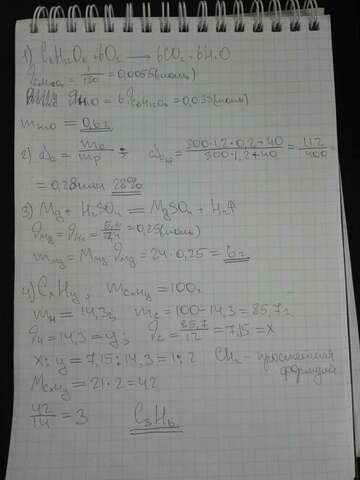 1) C₆H₁₂O₆ + 6O₂ → 6CO₂ + 6H₂O
ν C₆H₁₂O₆ = 1/180 = 0,0055 (моль)
ν H₂O = 6 ν C₆H₁₂O₆ = 0,033 (моль)
m H₂O = 0,6 г
2) ω_в = m_в/m_р ; ω_в р = (300·1,2·0,2+40)/(300·1,2+40) = 112/400 =
= 0,28 или 28%
3) Mg + H₂SO₄ = MgSO₄ + H₂↑
ν Mg = ν H₂ = 5,6/22,4 = 0,25 (моль)
m Mg = M Mg · ν Mg = 24 · 0,25 = 6 г
4) CxHy ; m CxHy = 100 г
m H = 14,3 г m C = 100 - 14,3 = 85,7 г
ν H = 14,3 = y ; ν C = 85,7/12 = 7,15 = x
x : y = 7,15 : 14,3 = 1 : 2 CH₂ - простейшая
формула
M CxHy = 21 · 2 = 42
42/14 = 3 C₃H₆